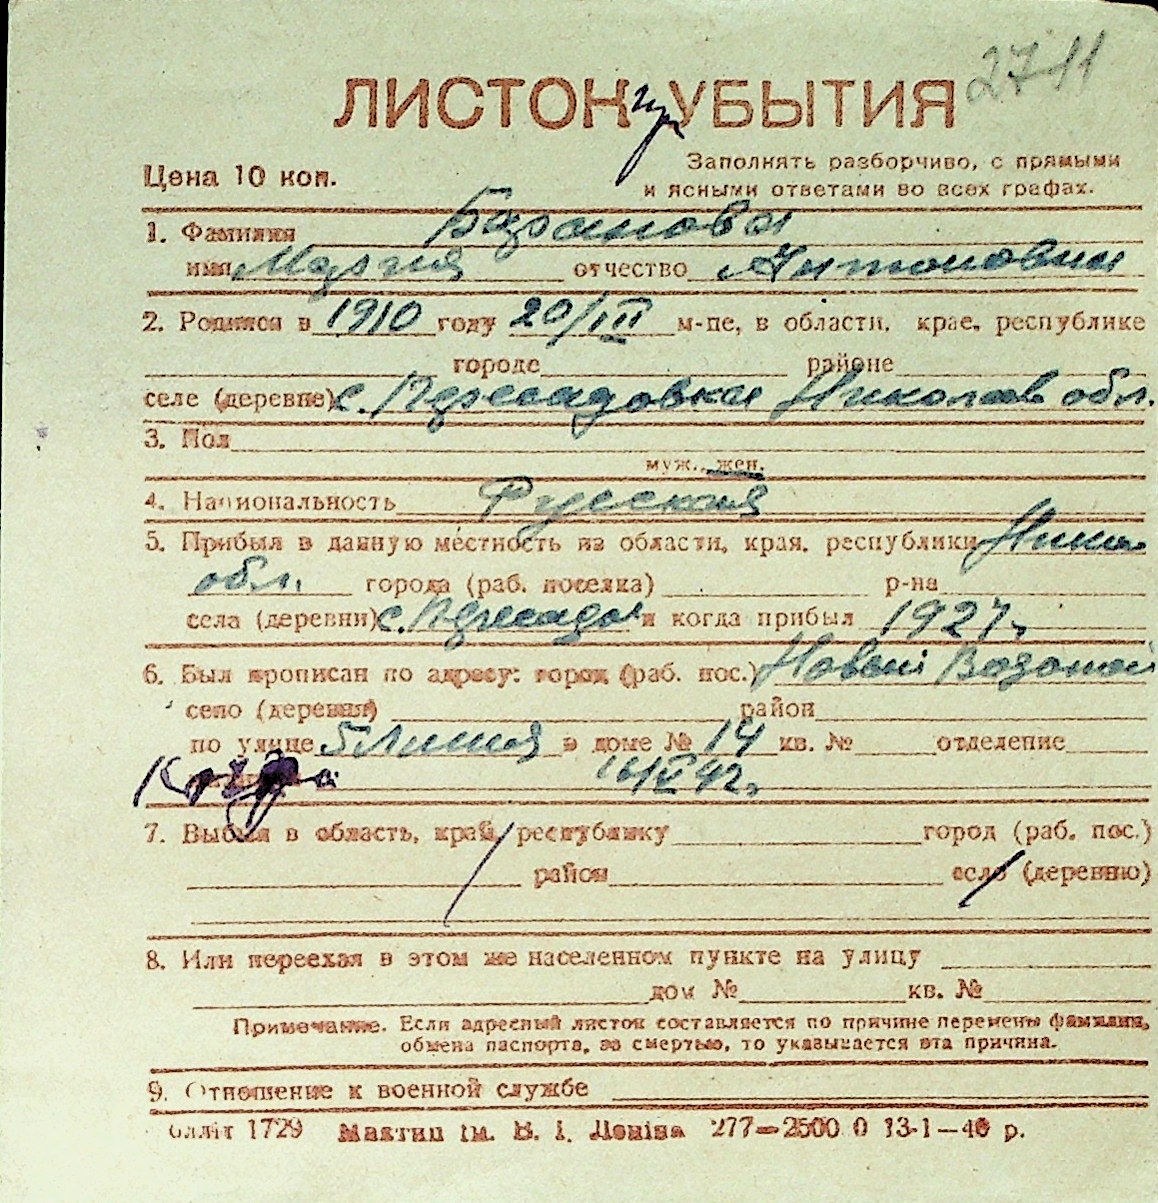 2711
ЛИСТОК УБЫТИЯ
Цена 10 коп.
Заполнять разборчиво, с прямыми
и ясными ответами во всех графах.
1. Фамилия Баранова
имя Мария отчество Антоновна
2. Родился в 1910 году 20/III м-це, в области, крае, республике
городе районе
селе (деревне) с. Пересадовка Николаев обл.
3. Пол
муж., жен.
4. Национальность Русская
5. Прибыл в данную местность из области, края, республики Ник.
обл. города (раб. поселка) р-на
села (деревни) с. Пересадов и когда прибыл 1927 г.
6. Был прописан по адресу: город (раб. пос.) Новый Водопой
село (деревня) район
по улице 5 Линия в доме № 14 кв. № отделение
42 г.
7. Выбыл в область, край, республику город (раб. пос.)
район село (деревню)
8. Или переехал в этом же населенном пункте на улицу
дом № кв. №
Примечание. Если адресный листок составляется по причине перемены фамилии,
обмена паспорта, за смертью, то указывается эта причина.
9. Отношение к военной службе
1729 ім. В. І. Леніна 277—2500 0 13-1—40 р.